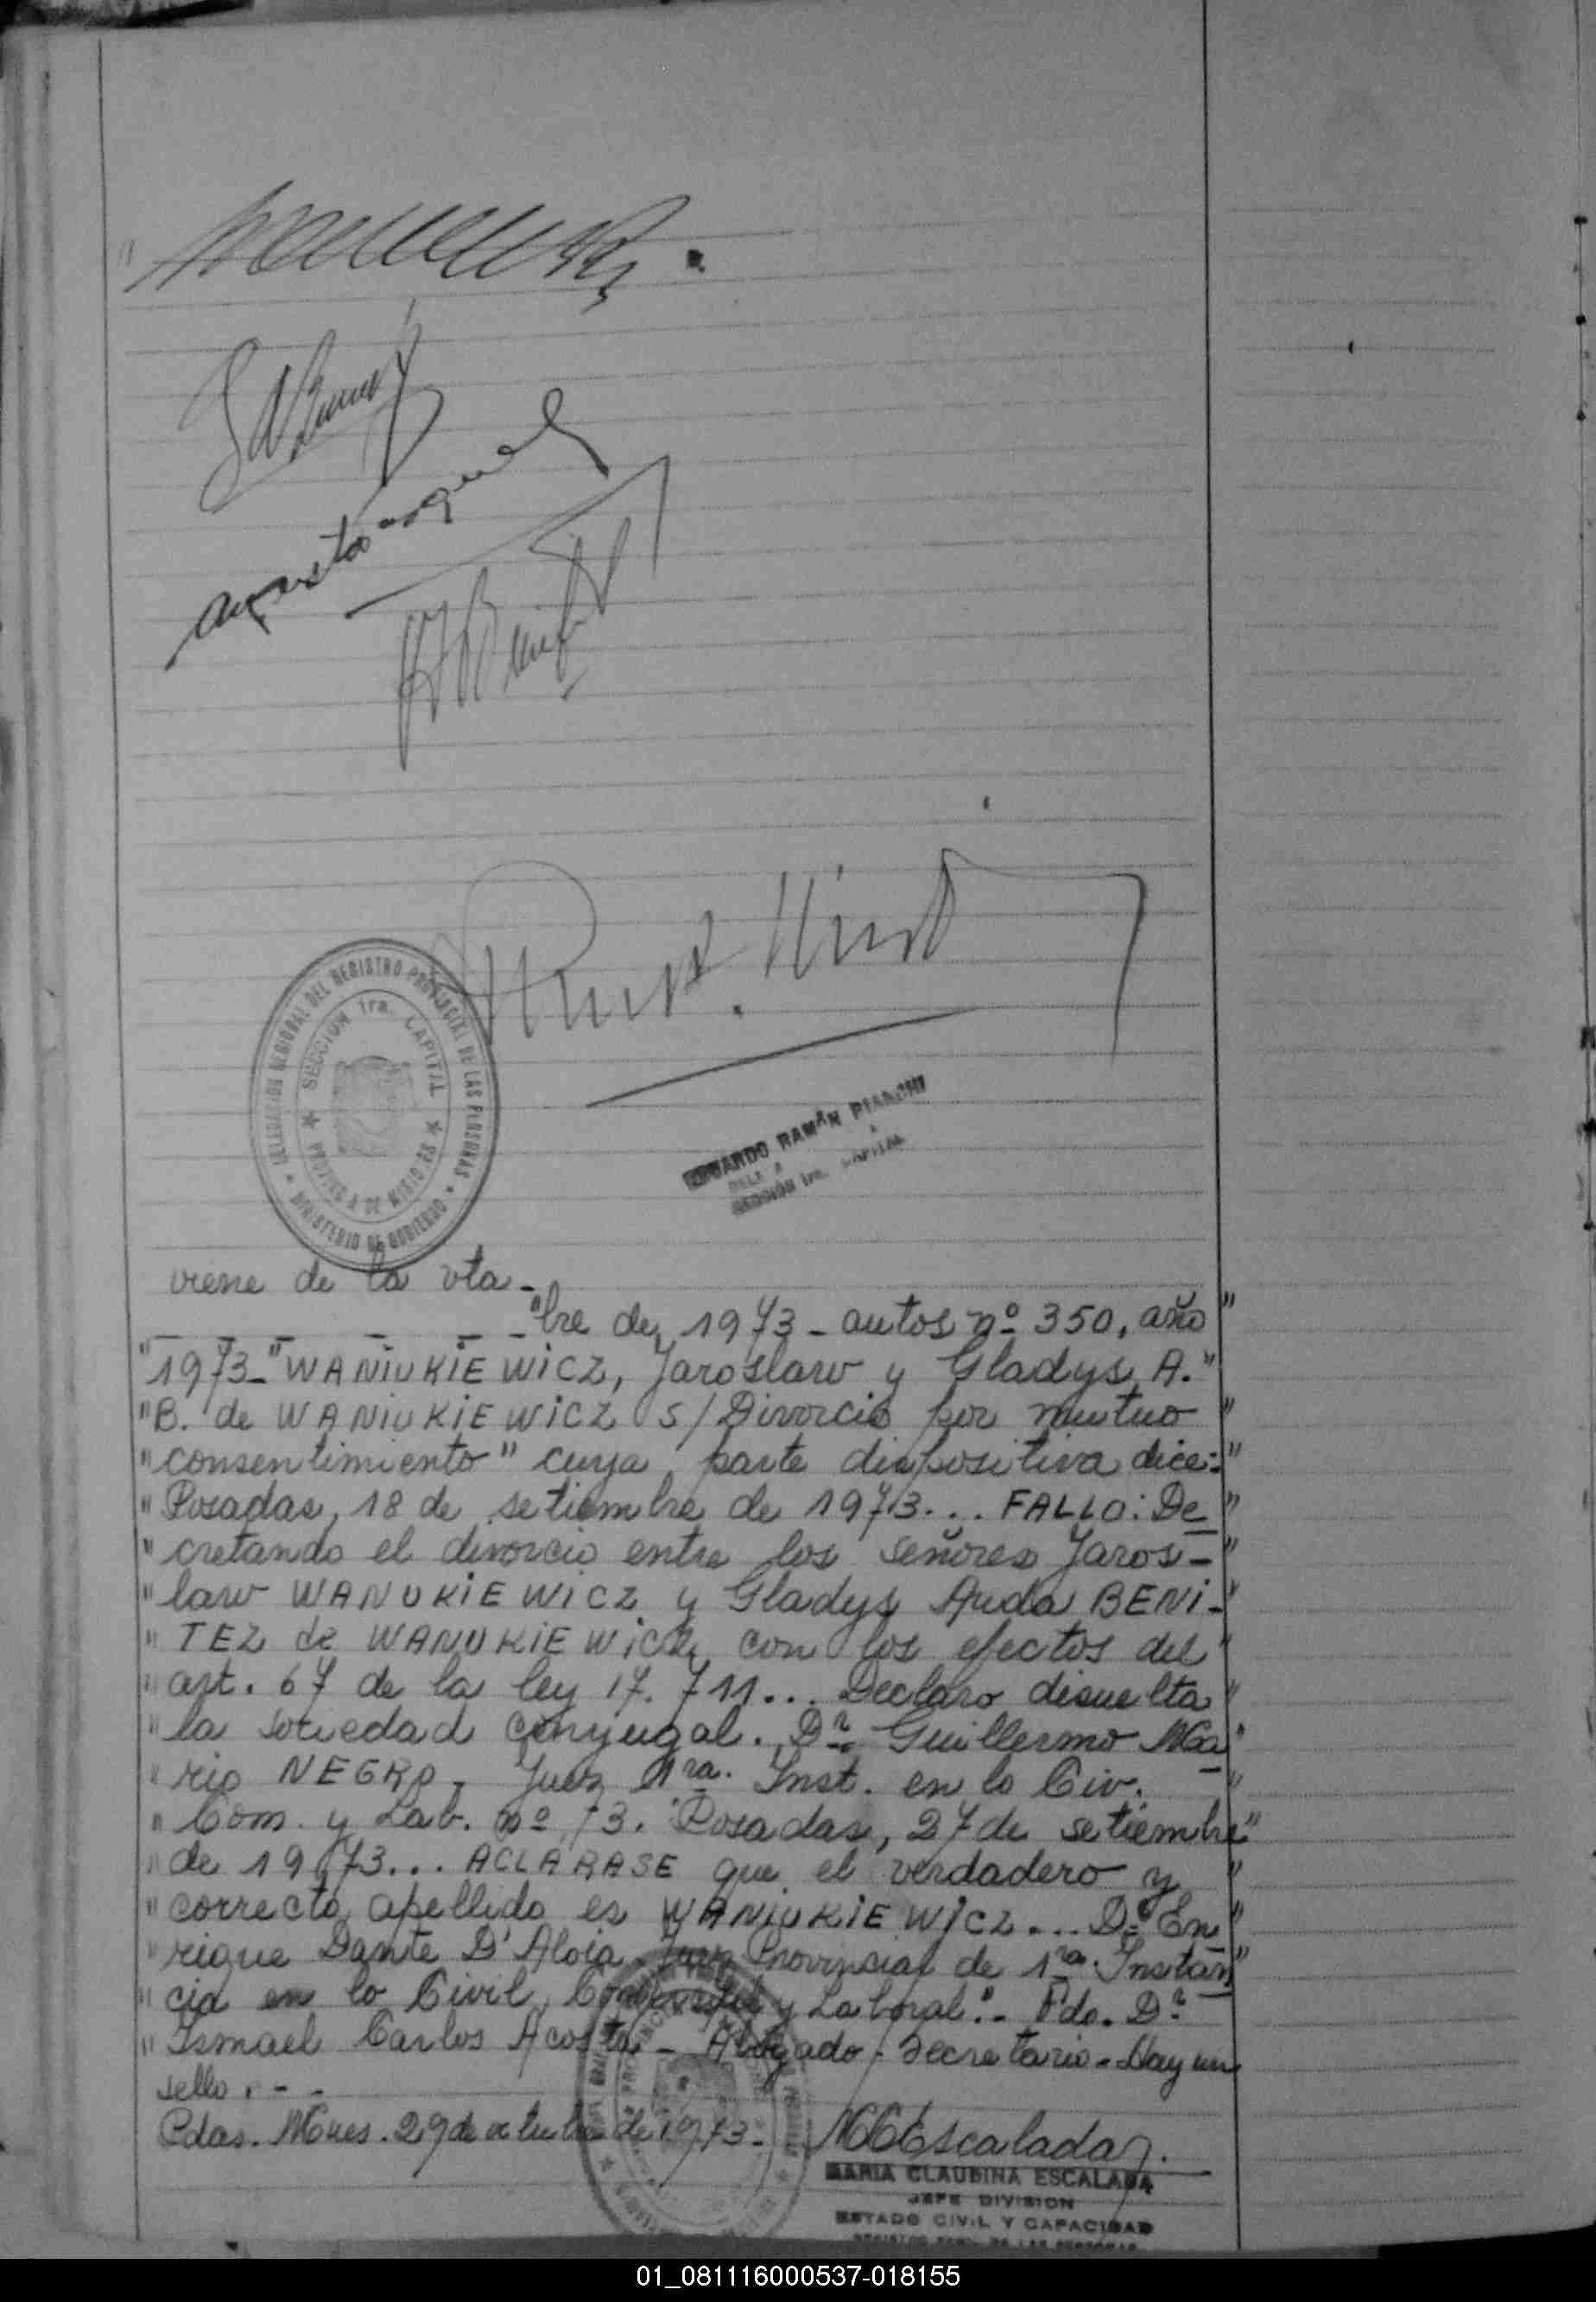 DELEGACION REGIONAL DEL REGISTRO PROVINCIAL DE LAS PERSONAS
SECCION 1ra. CAPITAL
PROVINCIA DE MISIONES
MINISTERIO DE GOBIERNO
EDUARDO RAMÓN PIANCHI
SECCIÓN 1ra. CAPITAL
viene de la vta-
"bre de 1973 - autos nº 350, año"
"1973- "WANIUKIEWICZ, Jaroslaw y Gladys A."
"B. de WANIUKIEWICZ S/Divorcio por mutuo"
"consentimiento" cuya parte dispositiva dice:"
"Posadas, 18 de setiembre de 1973... FALLO: De"
"cretando el divorcio entre los señores Jaros-"
"law WANUKIEWICZ y Gladys Aida BENI-"
"TEZ de WANUKIEWICZ, con los efectos del"
"art. 67 de la ley 17.711... Declaro disuelta"
"la sociedad conyugal. Dr. Guillermo Ma"
"rio NEGRO, Juez 1ra. Inst. en lo Civ."
"Com. y Lab. nº 3. Posadas, 27 de setiembre"
"de 1973... ACLARASE que el verdadero y"
"correcto apellido es WANIUKIEWICZ... Dr. En"
"rique Dante D'Aloia Juez Provincial de 1ra. Instan"
"cia en lo Civil, Comercial y Laboral".- Fdo. Dr.
"Ismael Carlos Acosta - Abogado - Secretario - Hay un
sello.--
Pdas. Mnes. 29 de octubre de 1973-
MCEscalada
MARIA CLAUDINA ESCALADA
JEFE DIVISION
ESTADO CIVIL Y CAPACIDAD
01_081116000537-018155